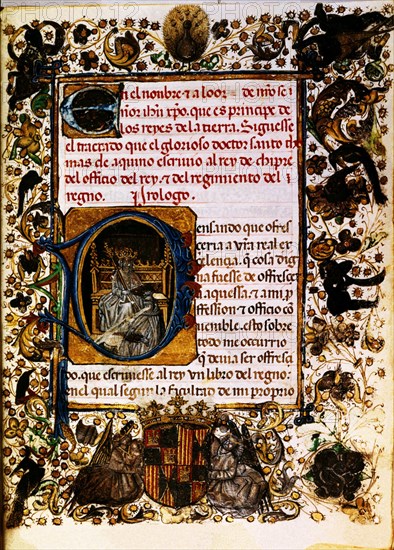 En el nonbre & a loor de nr̃o se
ñor ihũ xp̃o. que es principe de
los reyes de la tierra. Siguesse
el tractado que el glorioso doctor santo tho
mas de aquino escriuio al rey de chipre
del officio del rey. & del regimiento del
regno. Prologo.
Pensando que ofres
ceria a vr̃a real ex
celençia. q̃ cosa dig
na fuesse de offresçer
a aquessa. & a mi p
fession. & officio co
uenible. esto sobre
todo me occurrio
q̃ deuia ser offresçi
do. que escriuiesse al rey vn libro del regno:
en el qual segun la facultad de mi proprio